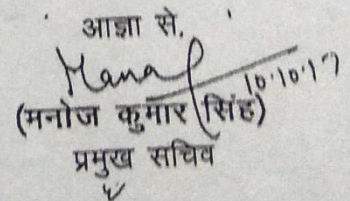 आज्ञा से,
Mana
10.10.17
(मनोज कुमार सिंह)
प्रमुख सचिव